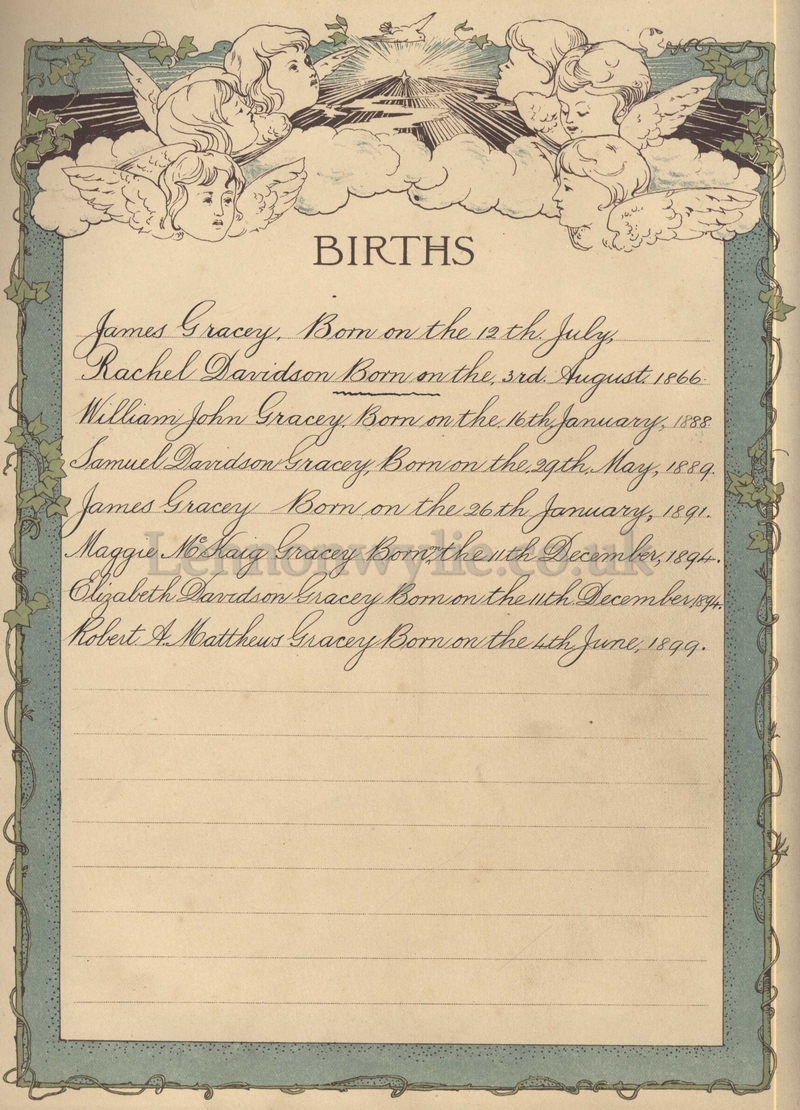 BIRTHS
James Gracey. Born on the 12th. July,
Rachel Davidson Born on the, 3rd. August. 1866.
William John Gracey. Born on the, 16th January, 1888.
Samuel Davidson Gracey, Born on the, 29th, May, 1889.
James Gracey Born on the 26th January, 1891.
Maggie McKaig Gracey Born on the 11th December, 1894.
Lennonwylie.co.uk
Elizabeth Davidson Gracey Born on the 11th. December 1894.
Robert A. Matthews Gracey Born on the 4th June, 1899.